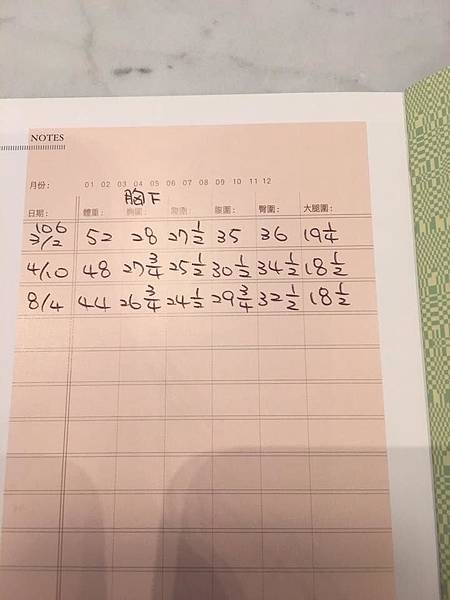 NOTES
月份: 01 02 03 04 05 06 07 08 09 10 11 12
胸下
日期: 體重: 胸圍: 腰圍: 腹圍: 臀圍: 大腿圍:
106
3/2 52 28 27 1/2 35 36 19 1/4
4/10 48 27 3/4 25 1/2 30 1/2 34 1/2 18 1/2
8/4 44 26 3/4 24 1/2 29 3/4 32 1/2 18 1/2